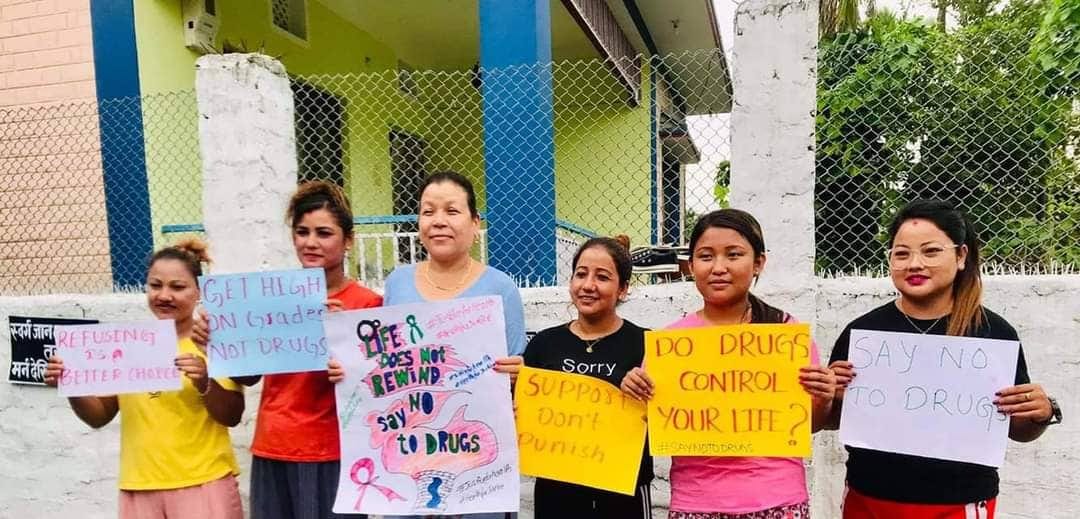 स्वर्ग जान
मर्न
REFUSING
IS A
BETTER CHOICE
GET HIGH
ON Grades
NOT DRUGS
LIFE
DOES NOT
REWIND
SAY NO
TO DRUGS
Sorry
SUPPORT
Don't
Punish
DO DRUGS
CONTROL
YOUR LIFE?
#SAYNOTODRUGS
SAY NO
TO DRUGS